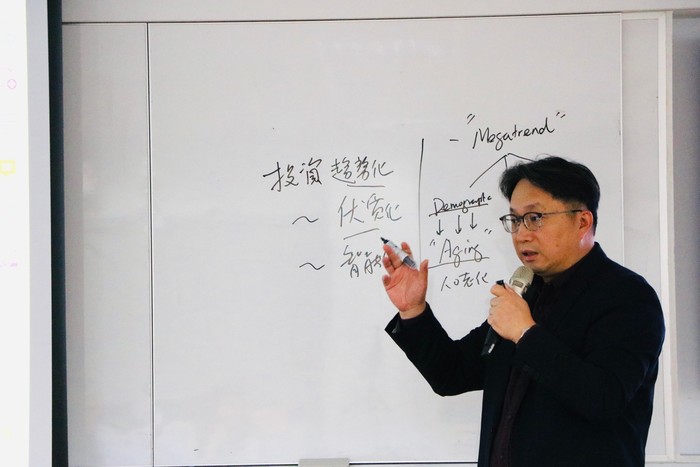 投資趨勢化
～ 優質化
～ 智能
- "Megatrend"
Demographic
"Aging"
人口老化